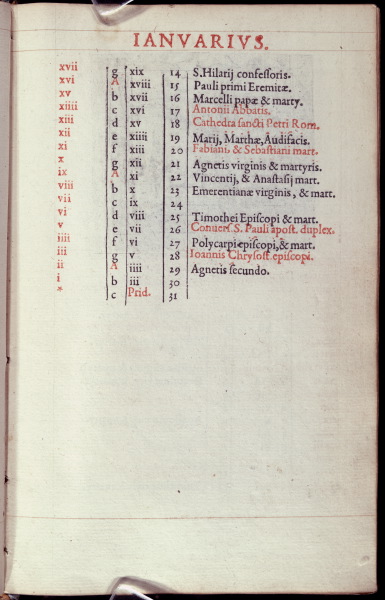 IANVARIVS.
xvii g xix 14 S. Hilarij confessoris.
xvi A xviii 15 Pauli primi Eremitæ.
xv b xvii 16 Marcelli papæ & marty.
xiiii c xvi 17 Antonii Abbatis.
xiii d xv 18 Cathedra sancti Petri Rom.
xii e xiiii 19 Marij, Marthæ, Audifacis.
xi f xiii 20 Fabiani & Sebastiani mart.
x g xii 21 Agnetis virginis & martyris.
ix A xi 22 Vincentij, & Anastasij mart.
viii b x 23 Emerentianæ virginis, & mart.
vii c ix 24
vi d viii 25 Timothei Episcopi & mart.
v e vii 26 Conuers. S. Pauli apost. duplex.
iiii f vi 27 Polycarpi episcopi, & mart.
iii g v 28 Ioannis Chrysost. episcopi.
ii A iiii 29 Agnetis secundo.
i b iii 30
* c Prid. 31